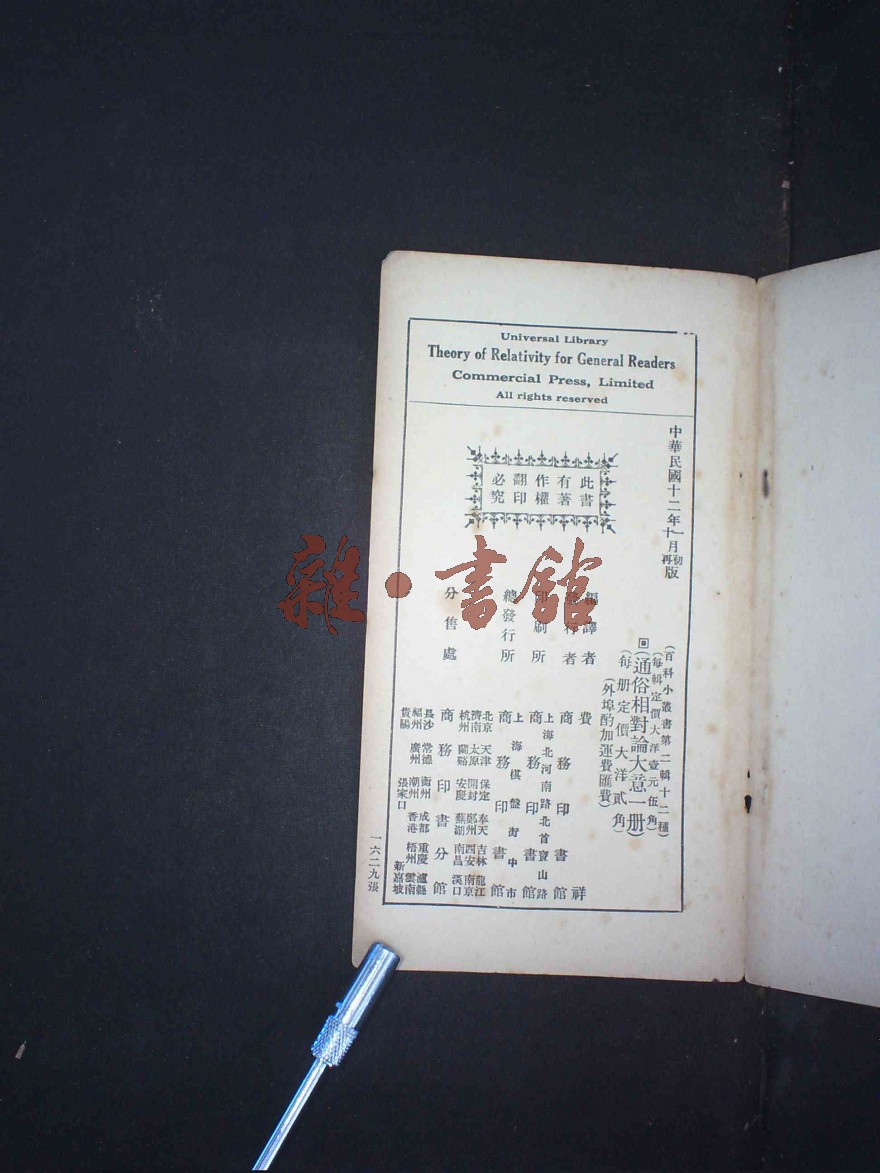 Universal Library
Theory of Relativity for General Readers
Commercial Press, Limited
All rights reserved
中華民國十二年十一月初再版
此書
有著
作權
翻印
必究
(百科小叢書第二輯十二種)
(每輯定價大洋壹元伍角)
(通俗相對論大意一冊)
(每冊定價大洋貳角)
(外埠酌加運費匯費)
編譯者 費祥
發行者 商務印書館
印刷所 上海北河南路北首寶山路 商務印書館
總發行所 上海棋盤街中市 商務印書館
分售處 商務印書分館
北京 天津 保定 奉天 吉林 龍江
濟南 太原 開封 鄭州 西安 南京
杭州 蘭谿 安慶 蕪湖 南昌 漢口
長沙 常德 衡州 成都 重慶 瀘縣
福州 廣州 潮州 香港 梧州 雲南
貴陽 張家口 新嘉坡
一六二九張
雜·書館